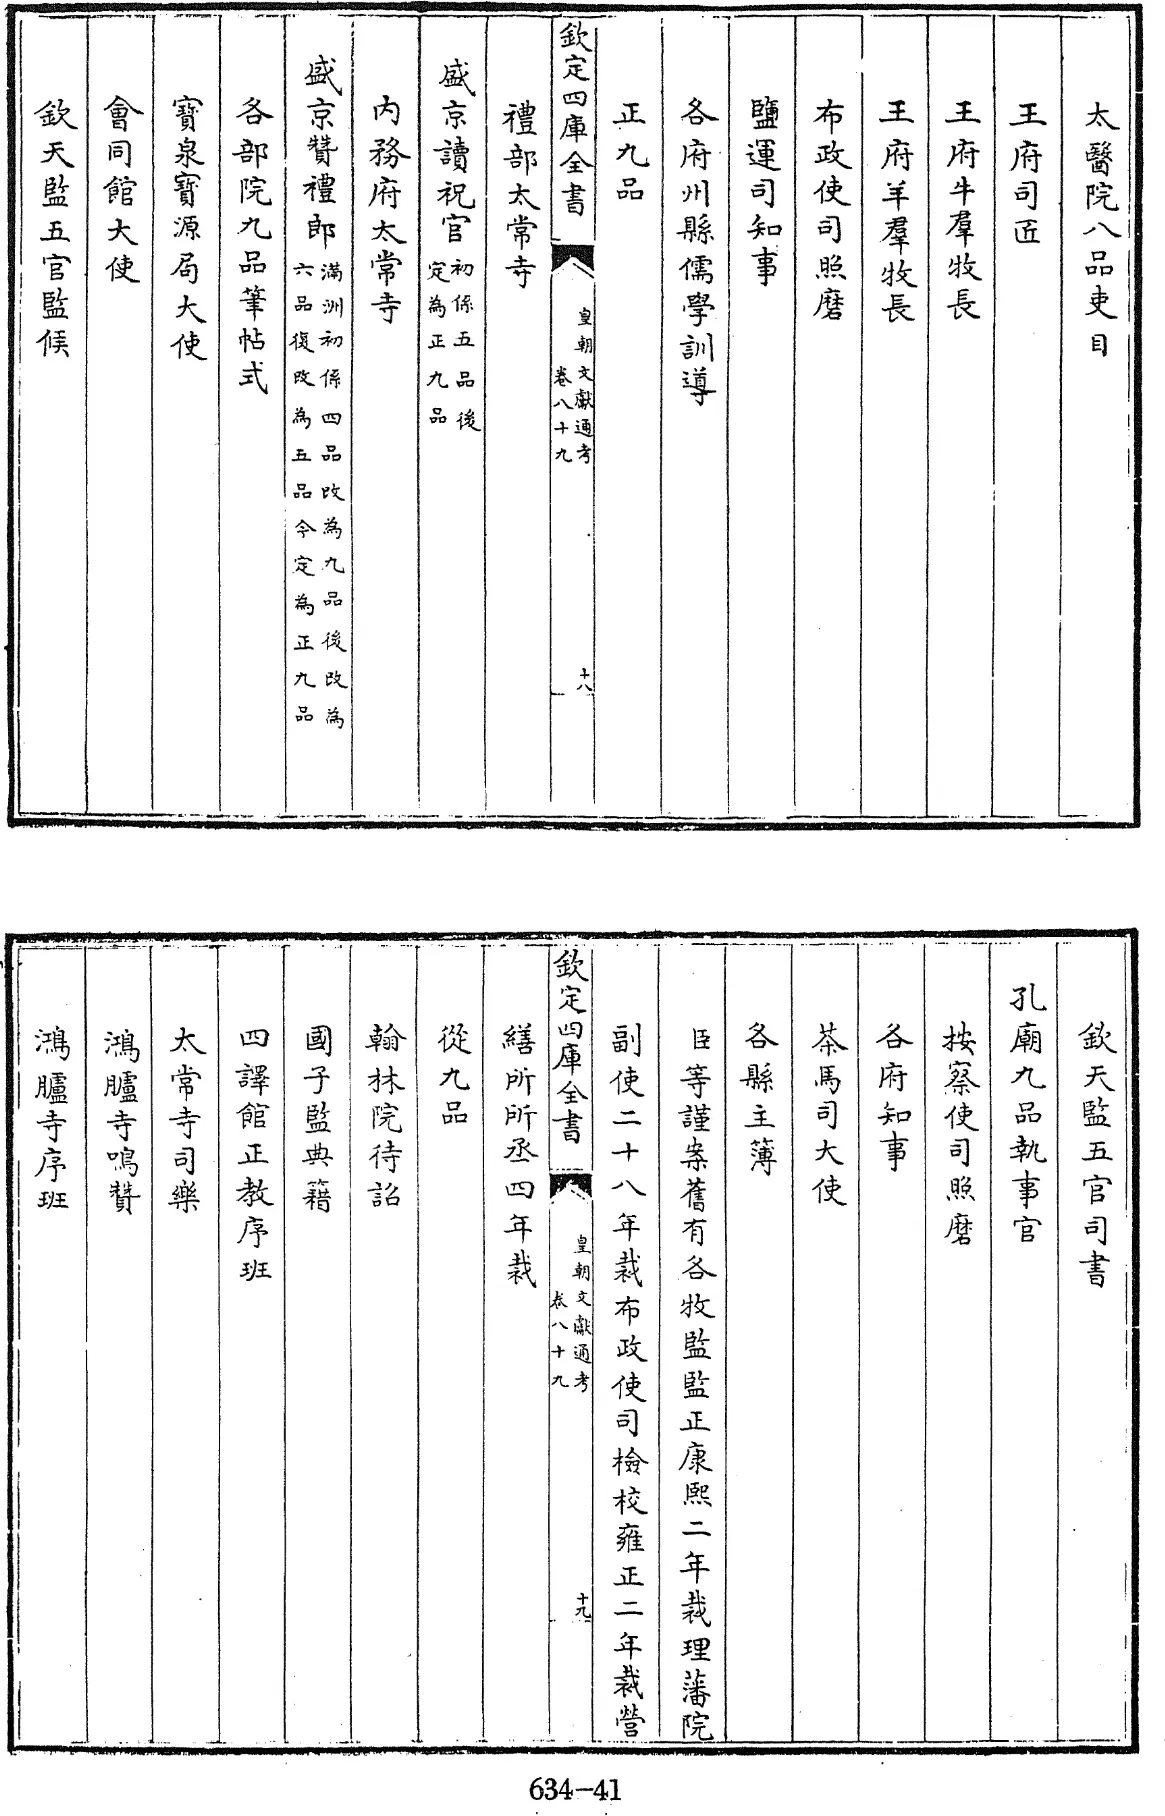 太醫院八品吏目
王府司匠
王府牛羣牧長
王府羊羣牧長
布政使司照磨
鹽運司知事
各府州縣儒學訓導
正九品
欽定四庫全書
皇朝文獻通考
卷八十九
十八
禮部太常寺
盛京讀祝官初係五品後
定為正九品
內務府太常寺
盛京贊禮郎滿洲初係四品改為九品後改為
六品復改為五品今定為正九品
各部院九品筆帖式
寶泉寶源局大使
會同館大使
欽天監五官監候
欽天監五官司書
孔廟九品執事官
按察使司照磨
各府知事
茶馬司大使
各縣主簿
臣等謹案舊有各牧監監正康熙二年裁理藩院
副使二十八年裁布政使司檢校雍正二年裁營
欽定四庫全書
皇朝文獻通考
卷八十九
十九
繕所所丞四年裁
從九品
翰林院待詔
國子監典籍
四譯館正教序班
太常寺司樂
鴻臚寺鳴贊
鴻臚寺序班
634-41